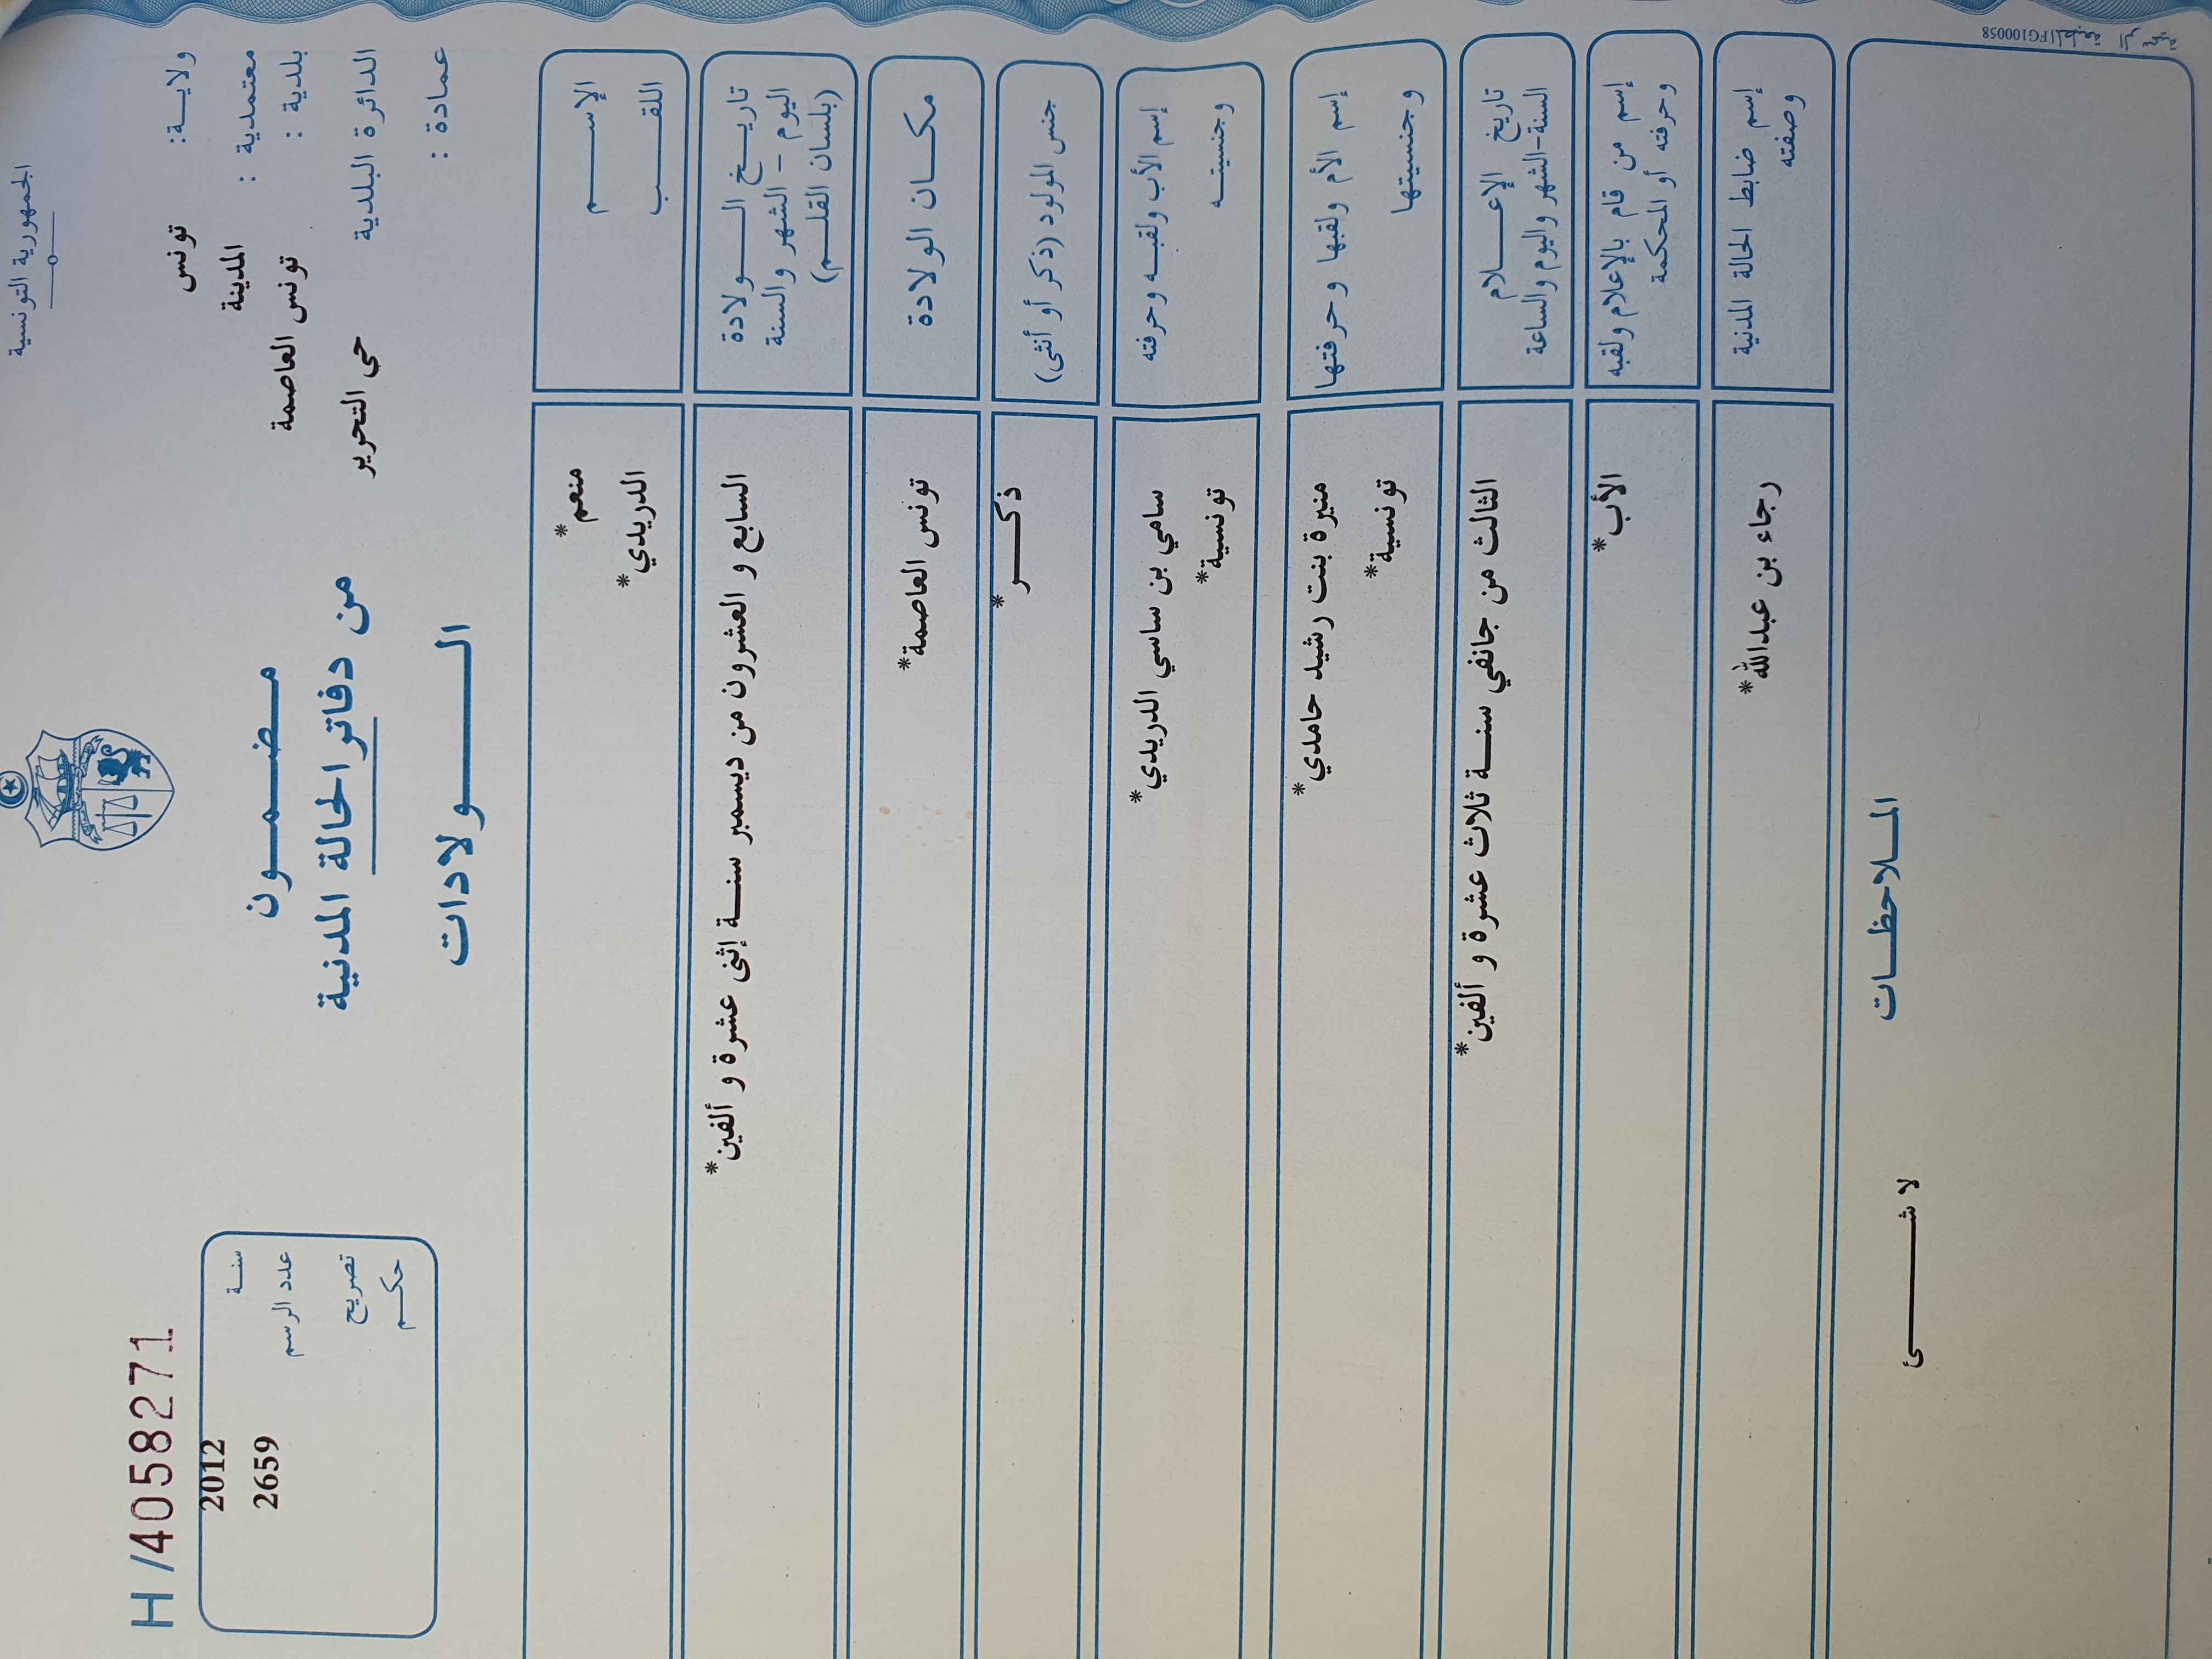 الجمهورية التونسية
H/4058271
ولايـــة: تونس
معتمدية : المدينة
بلدية : تونس العاصمة
الدائرة البلدية حي التحرير
عمادة :
مـضـمــون
من دفاتر الحالة المدنية
الــــولادات
سنــة 2012
عدد الرسم 2659
تصريح
حكــم
الإســـــم منعم*
اللقـــــب الدريدي*
تاريـــخ الـــولادة السابع و العشرون من ديسمبر سنــة إثنى عشرة و ألفين*
اليوم - الشهر والسنة
(بلسان القلـــم)
مكـــان الولادة تونس العاصمة*
جنس المولود (ذكر أو أنثى) ذكـــر*
إسم الأب ولقبـه وحرفته سامي بن ساسي الدريدي*
وجنسيتــه تونسية*
إسم الأم ولقبها وحرفتها منيرة بنت رشيد حامدي*
وجنسيتها تونسية*
تاريخ الإعـــلام الثالث من جانفي سنــة ثلاث عشرة و ألفين*
السنة-الشهر واليوم والساعة
إسم من قام بالإعلام ولقبه الأب*
وحرفته أو المحكمة
إسم ضابط الحالة المدنية رجاء بن عبدالله*
وصفته
المــلاحظــات
لا شـــــئ
FG100058 المطبعة الرسمية